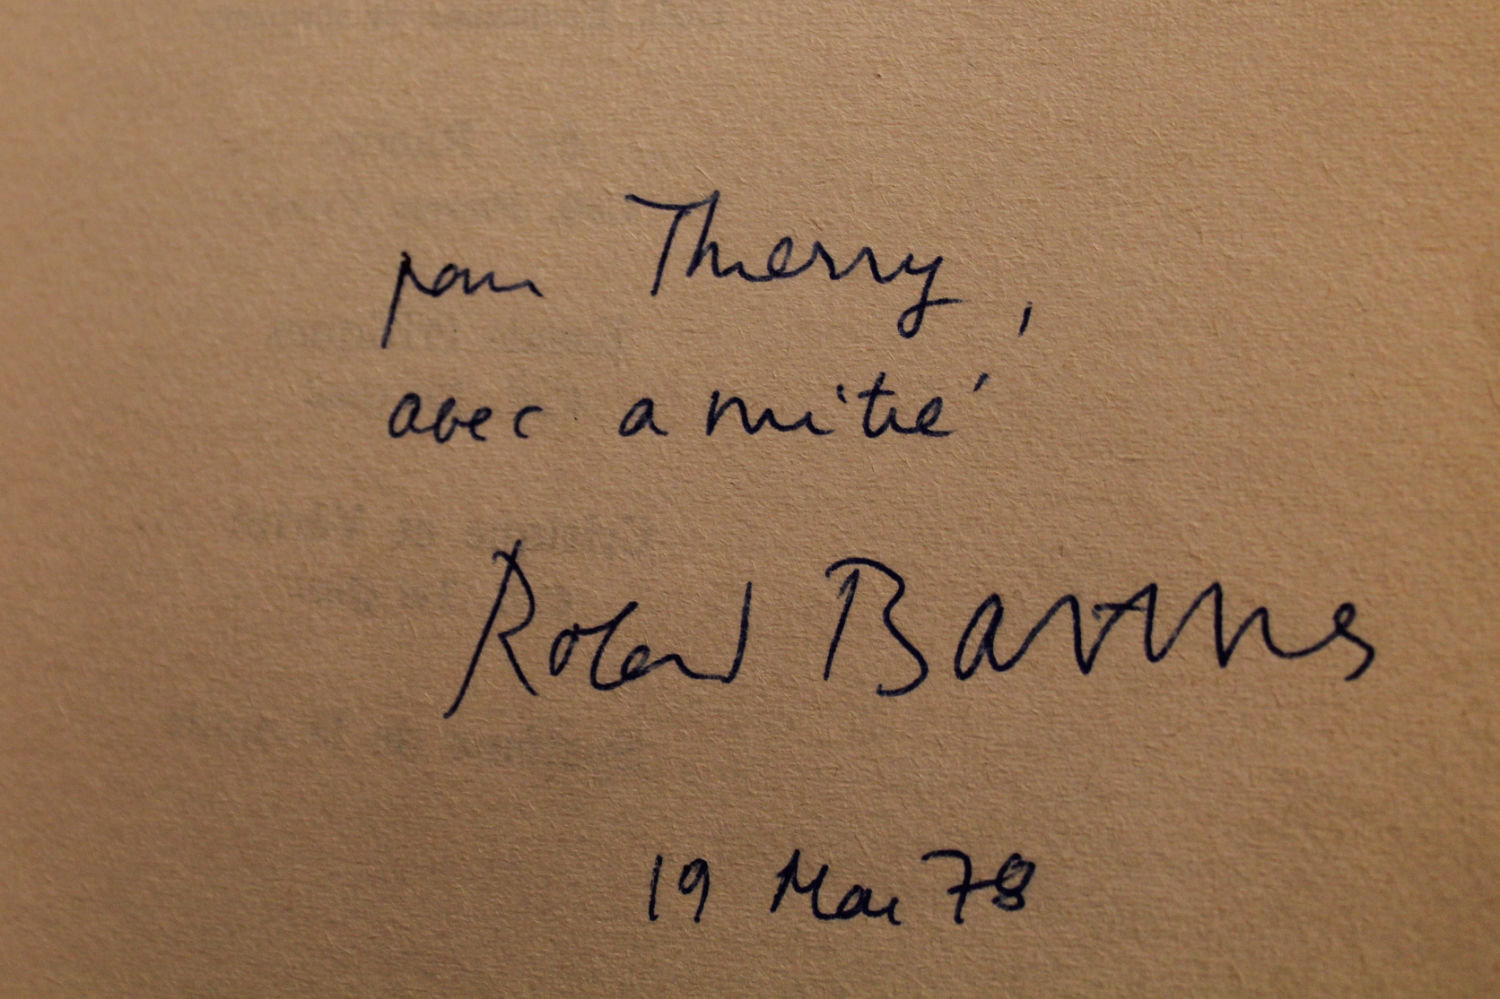 pour Thierry,
avec amitié
Roland Barthes
19 Mai 78